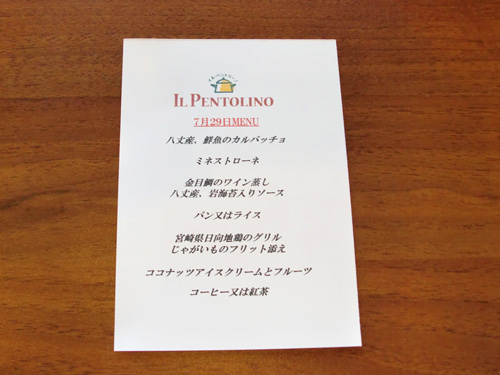 イル・ペントリーノ
IL PENTOLINO
7月29日MENU
八丈産、鮮魚のカルパッチョ
ミネストローネ
金目鯛のワイン蒸し
八丈産、岩海苔入りソース
パン又はライス
宮崎県日向地鶏のグリル
じゃがいものフリット添え
ココナッツアイスクリームとフルーツ
コーヒー又は紅茶